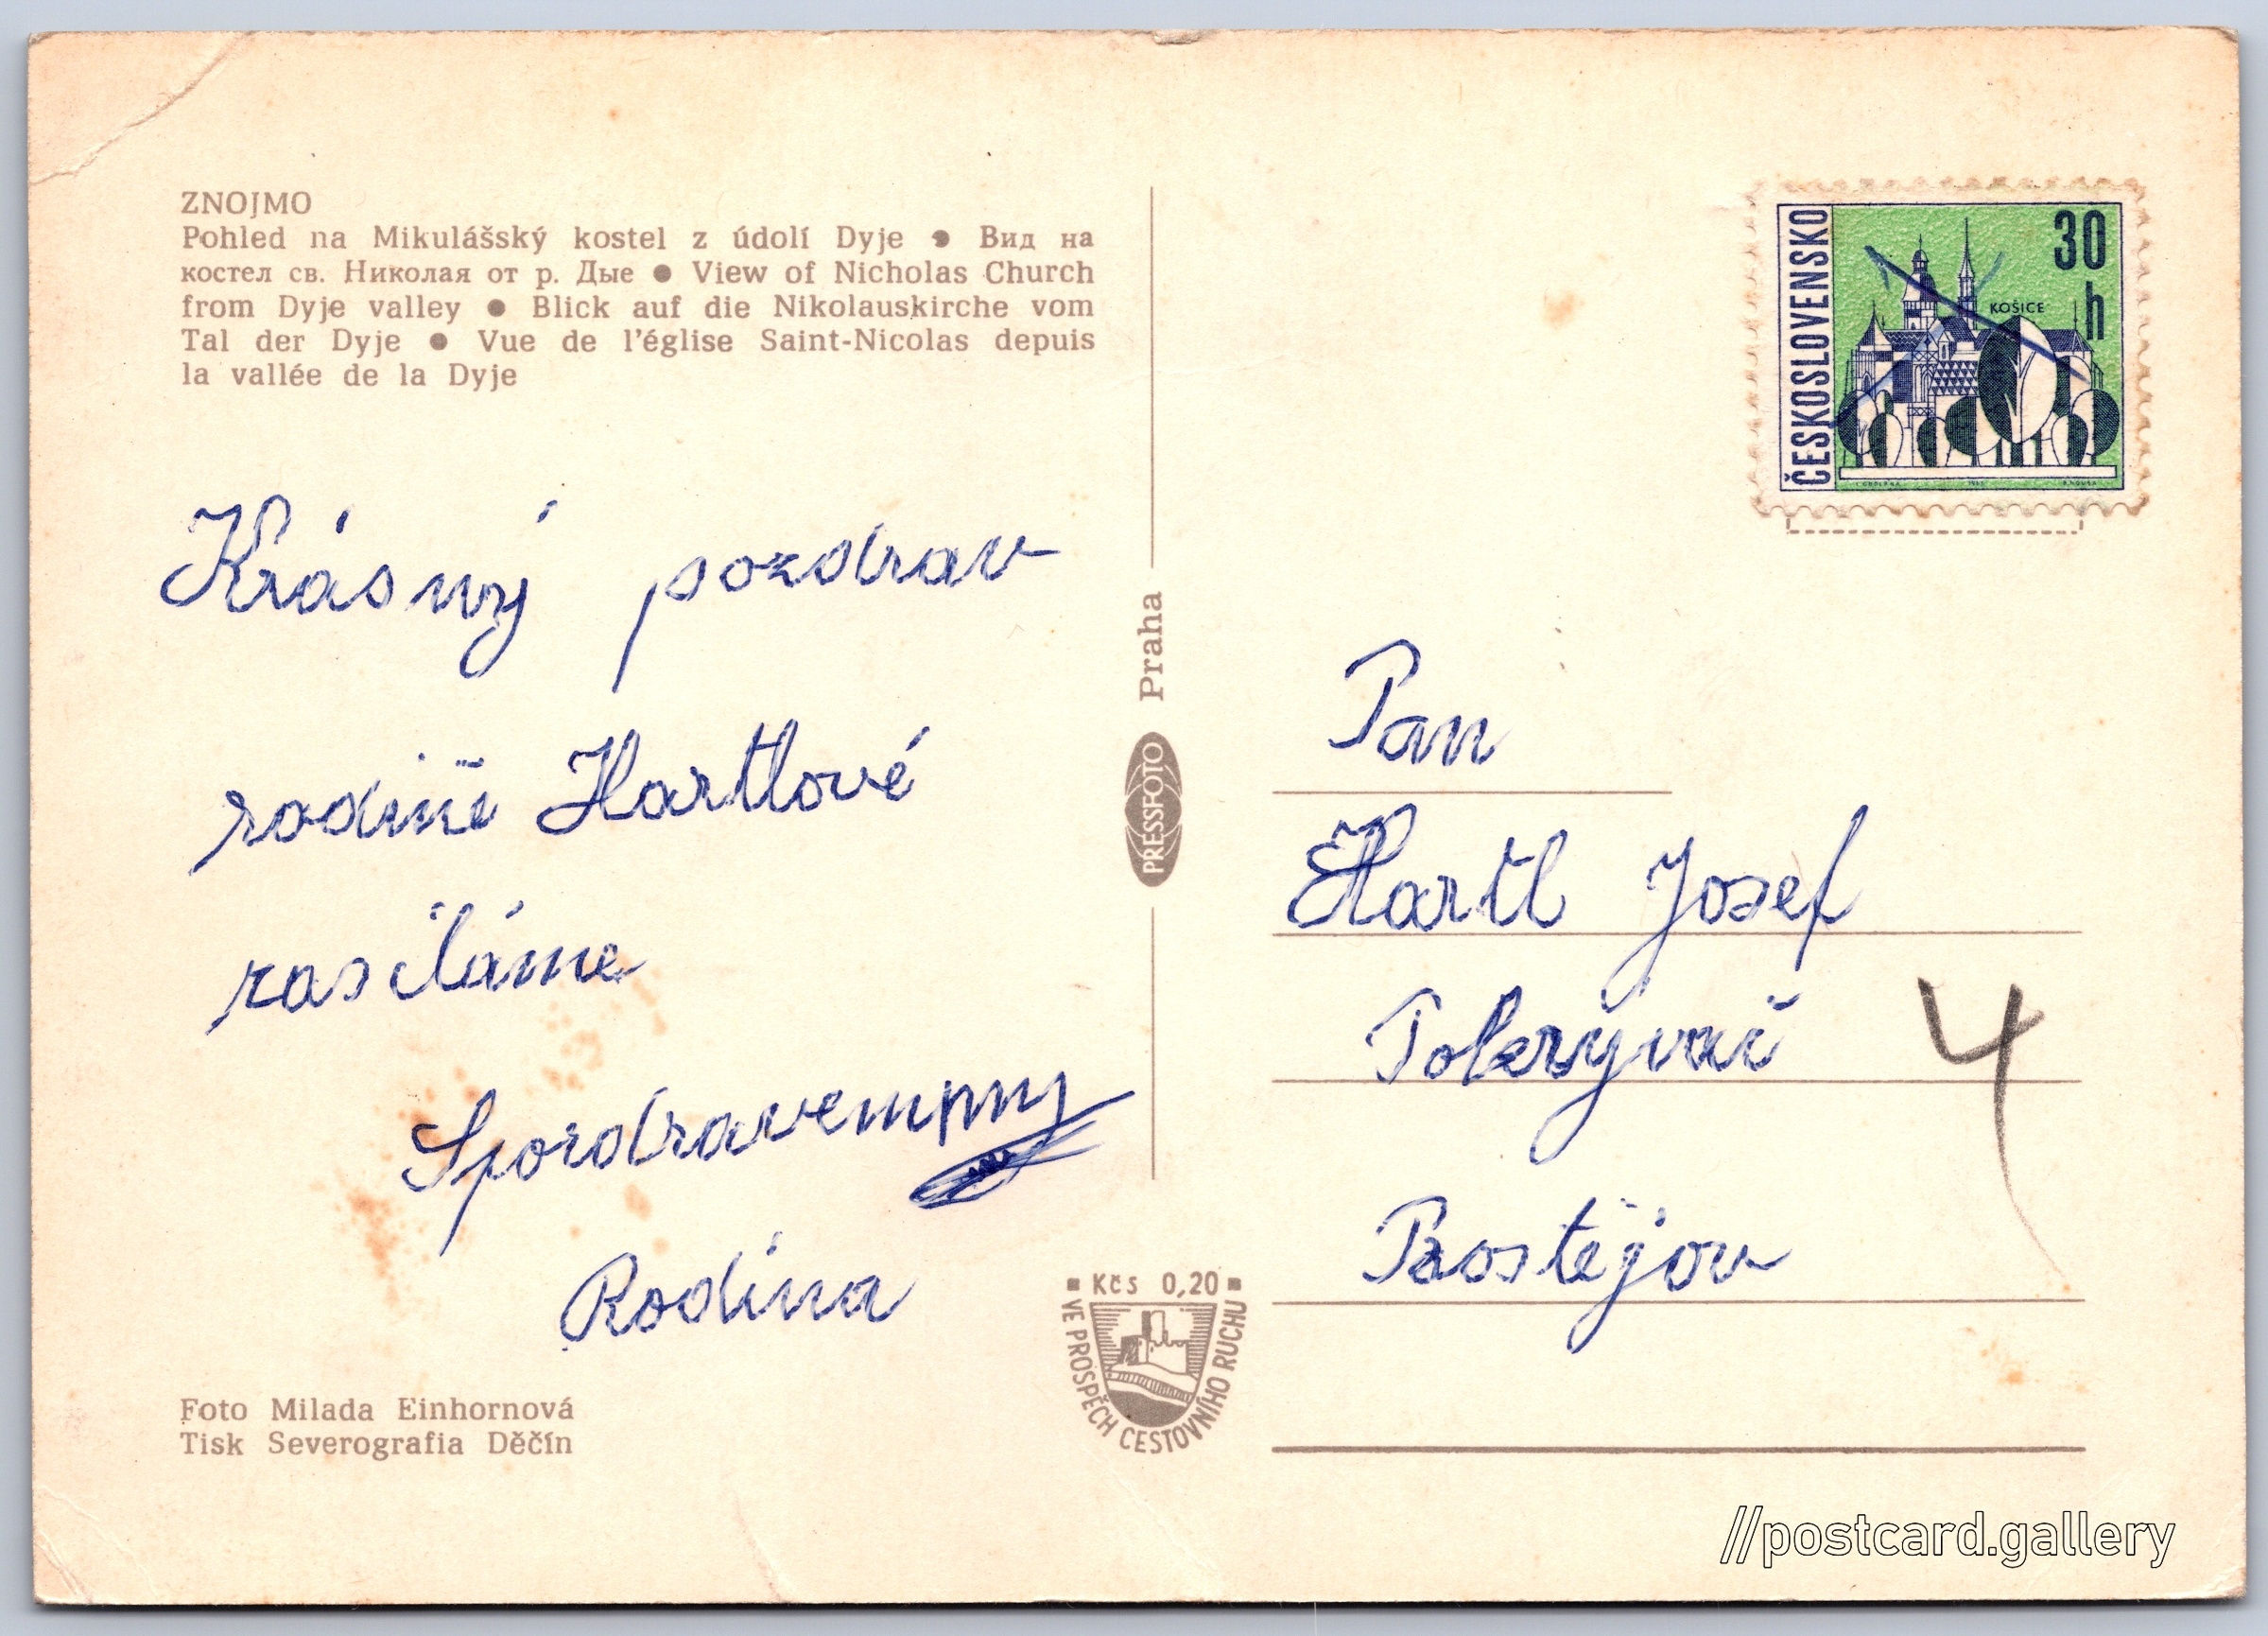 ZNOJMO
Pohled na Mikulášský kostel z údolí Dyje ● Вид на
костел св. Николая от р. Дые ● View of Nicholas Church
from Dyje valley ● Blick auf die Nikolauskirche vom
Tal der Dyje ● Vue de l'église Saint-Nicolas depuis
la vallée de la Dyje
Krásný pozdrav
rodině Hartlové
zasíláme
S pozdravem
Rodina
Foto Milada Einhornová
Tisk Severografia Děčín
PRESSFOTO Praha
Kčs 0,20
VE PROSPĚCH CESTOVNÍHO RUCHU
ČESKOSLOVENSKO
30
h
KOŠICE
Pan
Hartl Josef
Pokrývač
4
Prostějov
//postcard.gallery